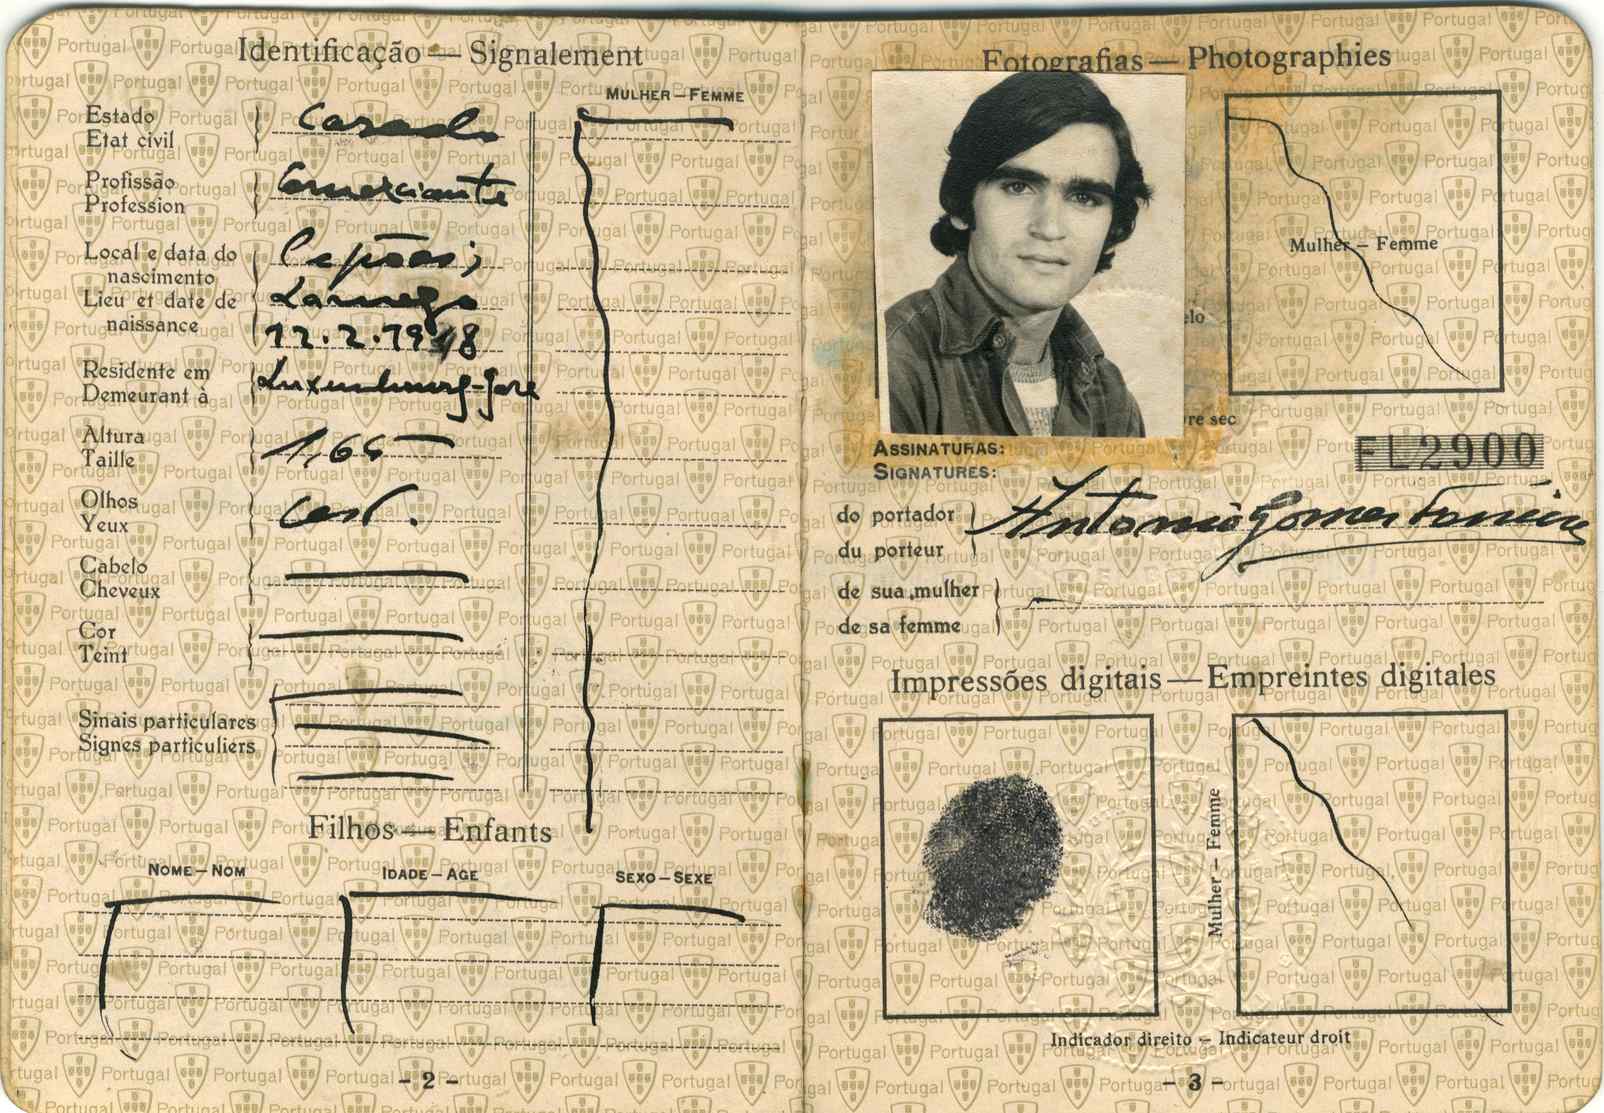 Identificação — Signalement
MULHER – FEMME
Estado
Etat civil
Casado
Profissão
Profession
Comerciante
Local e data do
nascimento
Lieu et date de
naissance
Cepões;
Lamego
12.2.1948
Residente em
Demeurant à
Luxembourg-Gare
Altura
Taille
1,65
Olhos
Yeux
Cast.
Cabelo
Cheveux
Cor
Teint
Sinais particulares
Signes particuliers
Filhos — Enfants
NOME – NOM IDADE – AGE SEXO – SEXE
- 2 -
Fotografias — Photographies
Mulher – Femme
elo
re sec
FL2900
ASSINATURAS:
SIGNATURES:
do portador
du porteur
Antonio Gomes Ferreira
de sua mulher
de sa femme
Impressões digitais — Empreintes digitales
Mulher – Femme
Indicador direito – Indicateur droit
- 3 -